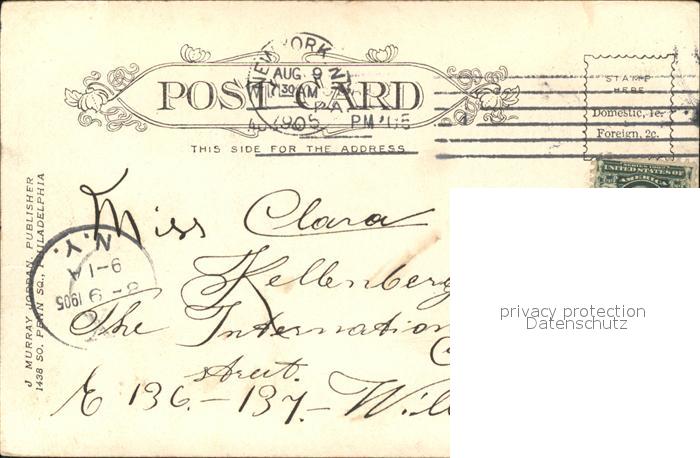 NEW YORK N.Y.
AUG 9
7 30 AM
1905
POST CARD
PM '05
STAMP
HERE
Domestic, 1c.
Foreign, 2c.
THIS SIDE FOR THE ADDRESS
UNITED STATES OF
AMERICA
J. MURRAY JORDAN, PUBLISHER
1438 SO. PENN SQ., PHILADELPHIA
N.Y.
9-1A
8-9 1905
Miss Clara
Kellenberg
The Internation
street.
E 136.-137.- Will
privacy protection
Datenschutz